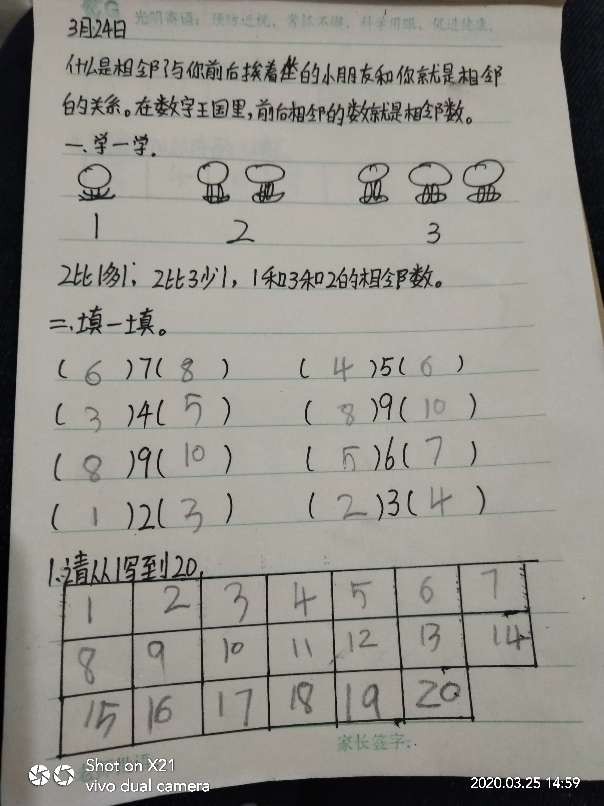 光明寄语：预防近视，常抓不懈，科学用眼，促进健康。
3月24日
什么是相邻？与你前后挨着坐的小朋友和你就是相邻
的关系。在数字王国里，前后相邻的数就是相邻数。
一、学一学.
1 2 3
2比1多1；2比3少1，1和3和2的相邻数。
二、填一填。
( 6 )7( 8 ) ( 4 )5( 6 )
( 3 )4( 5 ) ( 8 )9( 10 )
( 8 )9( 10 ) ( 5 )6( 7 )
( 1 )2( 3 ) ( 2 )3( 4 )
1.请从1写到20.
1 2 3 4 5 6 7
8 9 10 11 12 13 14
15 16 17 18 19 20
家长签字：
Shot on X21
vivo dual camera
2020.03.25 14:59